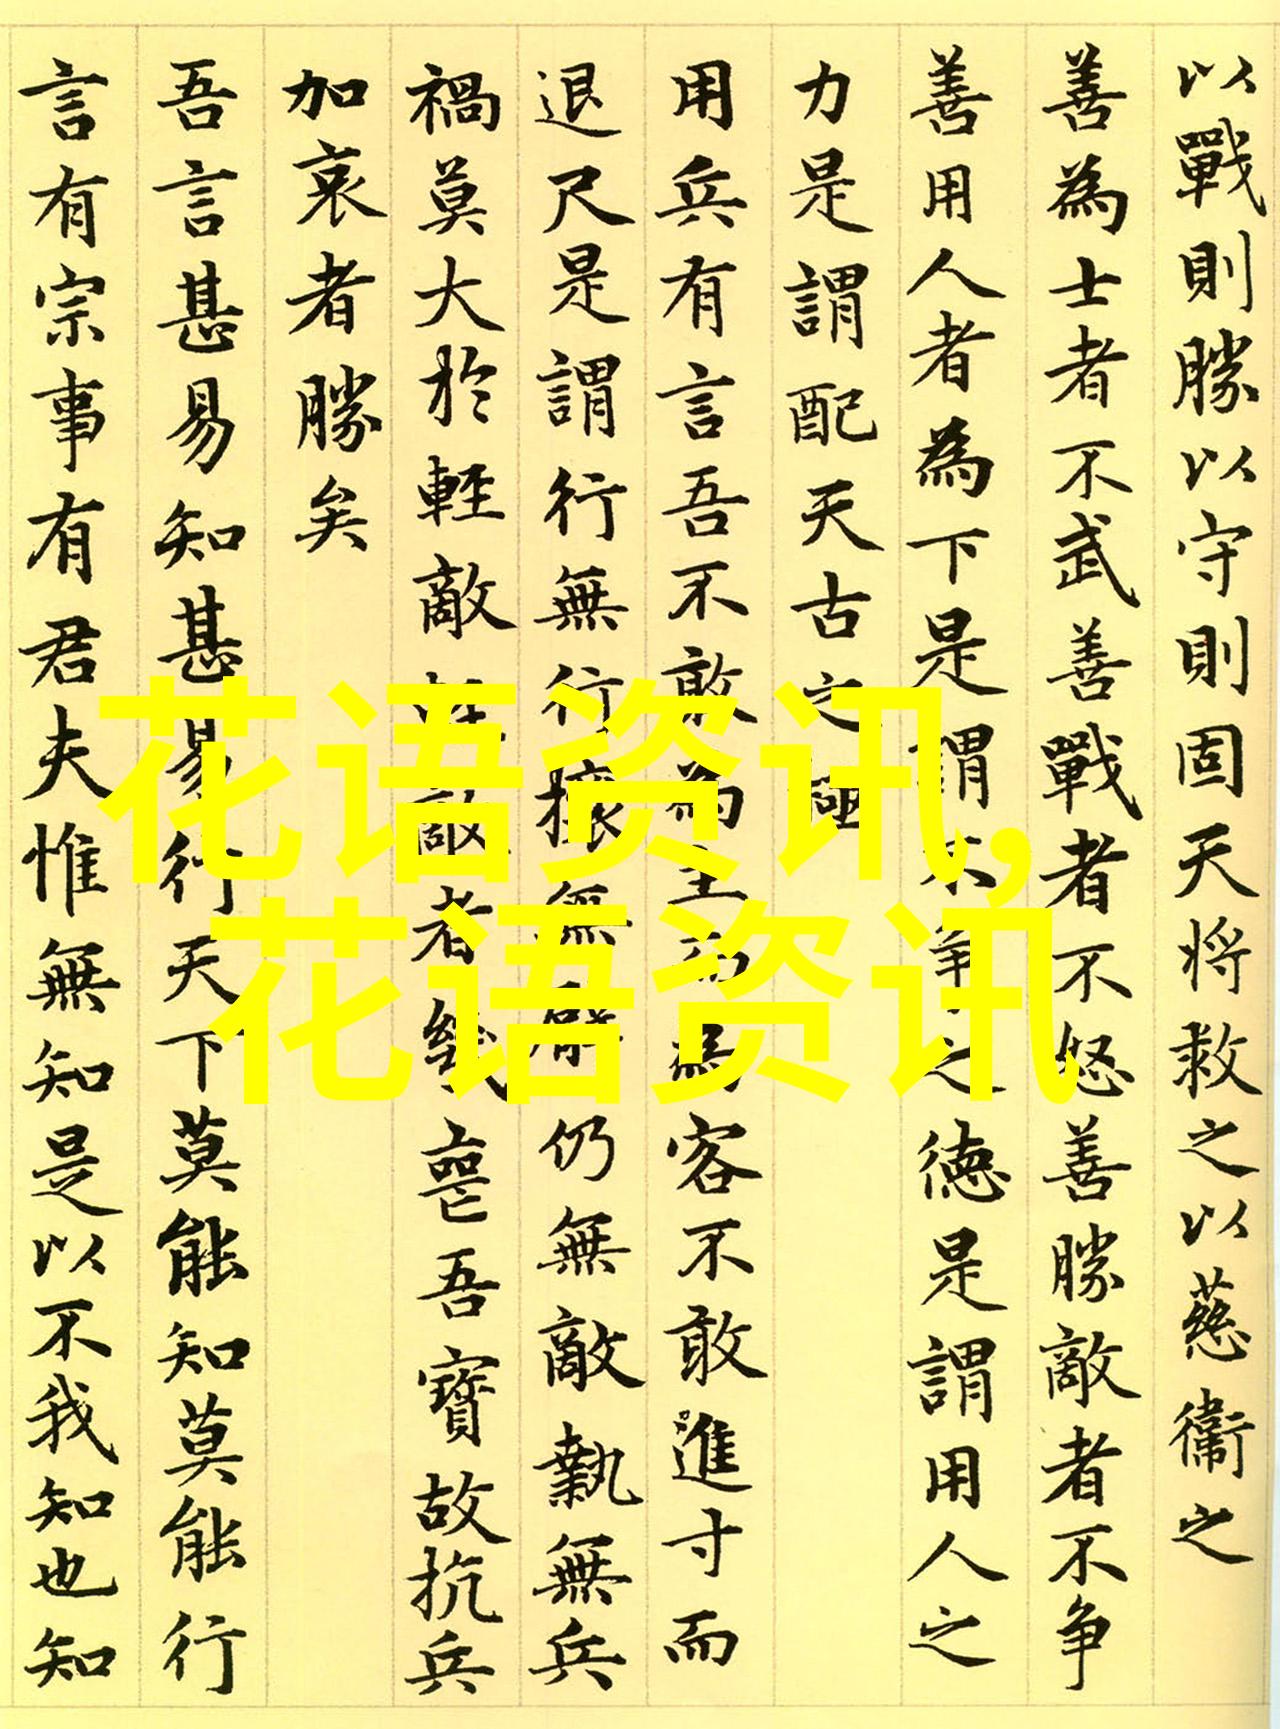 以戰則勝以守則固天将救之以慈衞之
善為士者不武善戰者不怒善勝敵者不争
善用人者為下是謂不争之德是謂用人之
力是謂配天古之極
用兵有言吾不敢為主而為客不敢進寸而
退尺是謂行無行攘無臂仍無敵執無兵
禍莫大於輕敵輕敵者幾喪吾寶故抗兵
加哀者勝矣
吾言甚易知甚易行天下莫能知莫能行
言有宗事有君夫惟無知是以不我知也知
花语资讯,
花语资讯